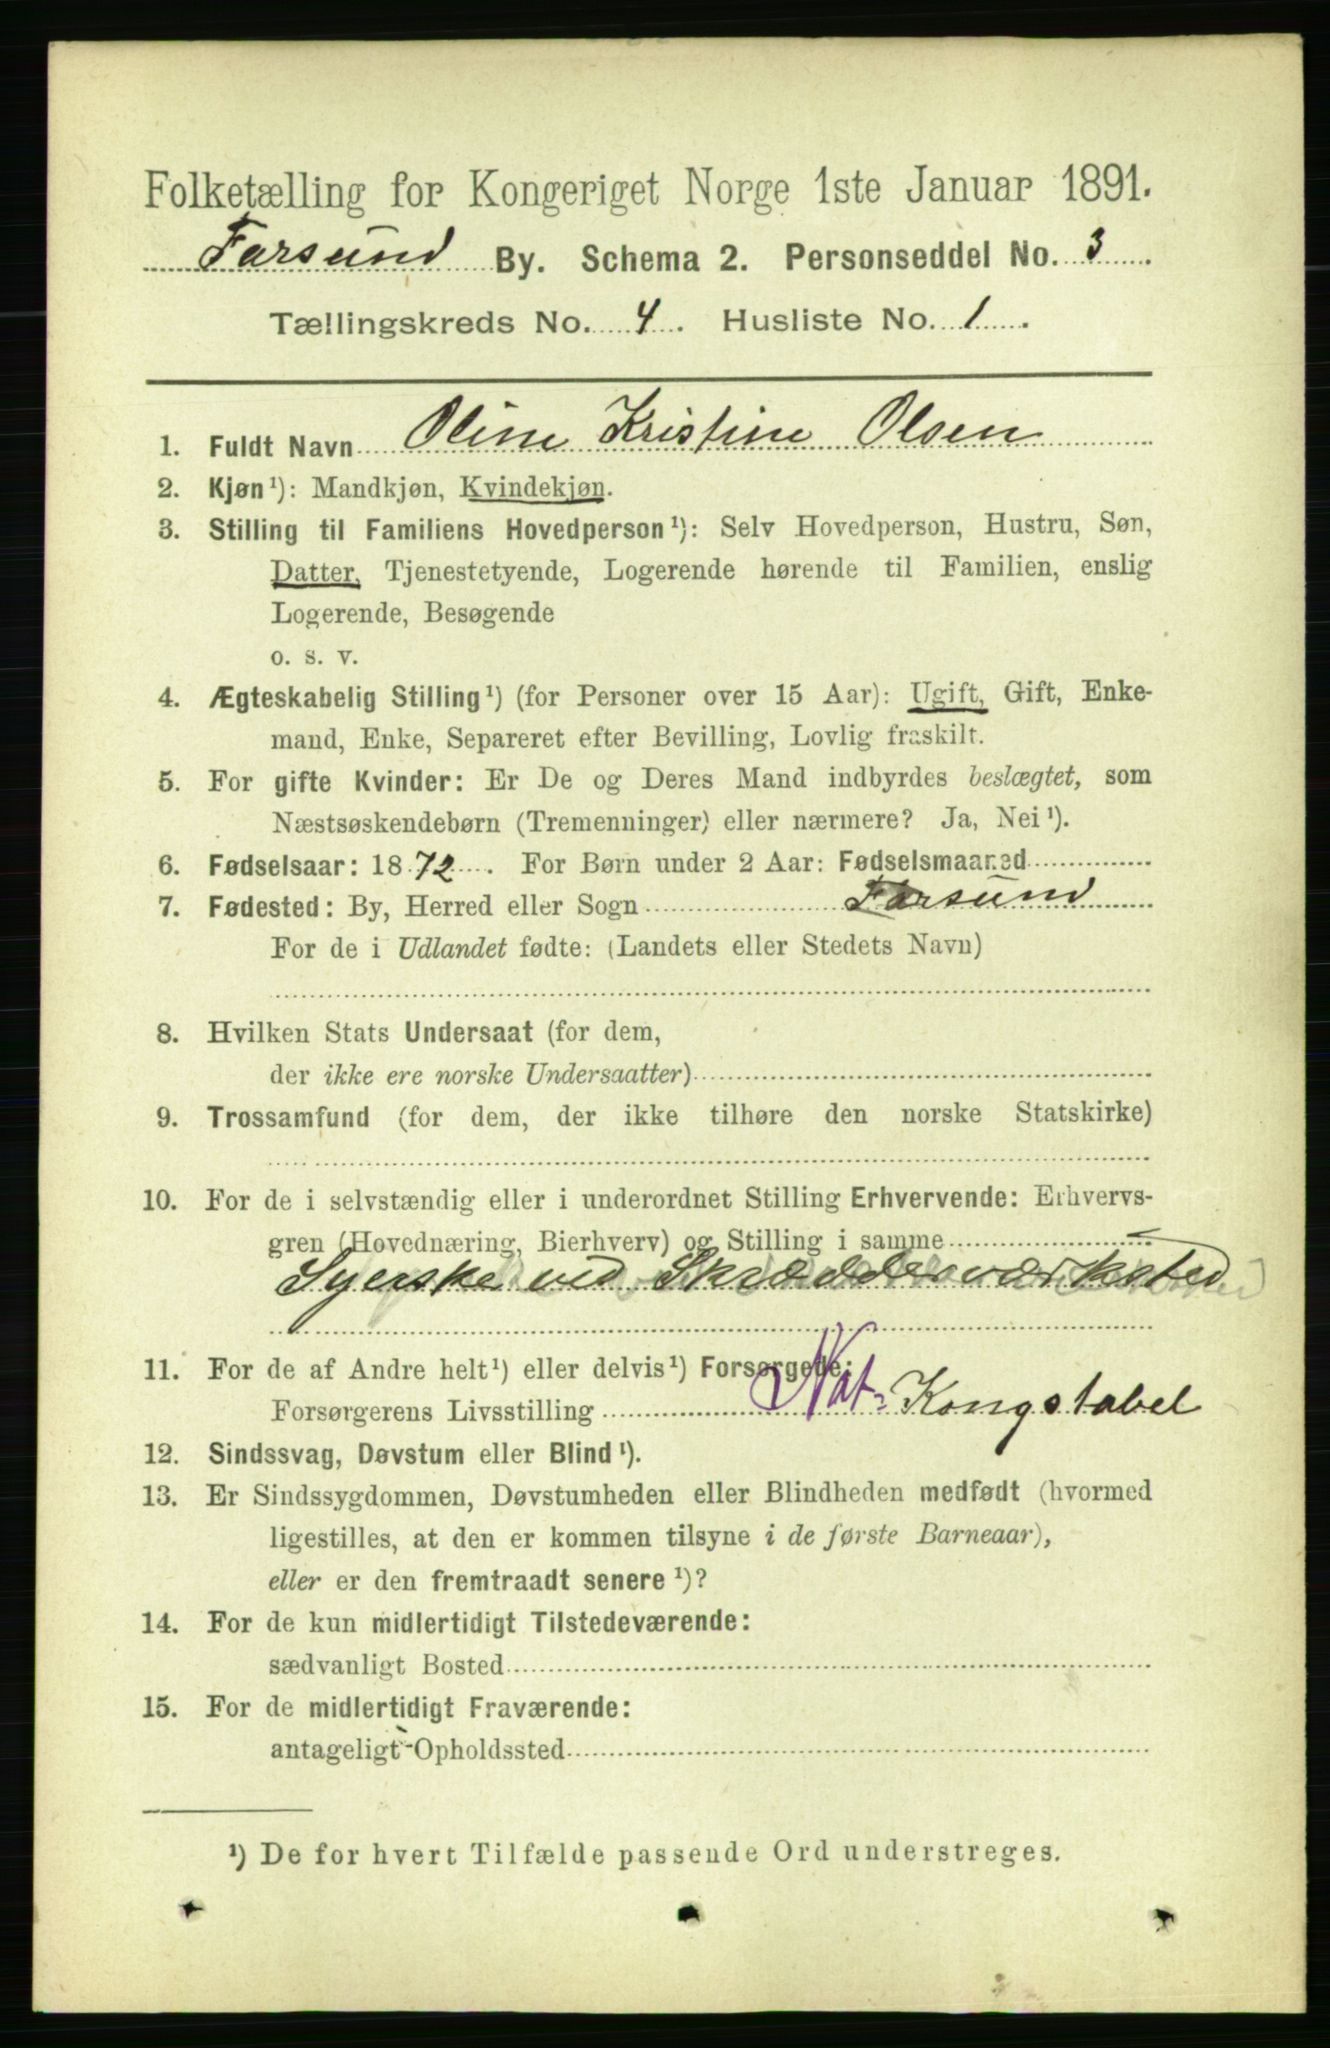 Folketælling for Kongeriget Norge 1ste Januar 1891.
Farsund By. Schema 2. Personseddel No. 3
Tællingskreds No. 4. Husliste No. 1.
1. Fuldt Navn Oline Kristine Olsen
2. Kjøn¹): Mandkjøn, Kvindekjøn.
3. Stilling til Familiens Hovedperson¹): Selv Hovedperson, Hustru, Søn,
Datter, Tjenestetyende, Logerende hørende til Familien, enslig
Logerende, Besøgende
o. s. v.
4. Ægteskabelig Stilling¹) (for Personer over 15 Aar): Ugift, Gift, Enke-
mand, Enke, Separeret efter Bevilling, Lovlig fraskilt.
5. For gifte Kvinder: Er De og Deres Mand indbyrdes beslægtet, som
Næstsøskendebørn (Tremenninger) eller nærmere? Ja, Nei¹).
6. Fødselsaar: 1872. For Børn under 2 Aar: Fødselsmaaned
7. Fødested: By, Herred eller Sogn Farsund
For de i Udlandet fødte: (Landets eller Stedets Navn)
8. Hvilken Stats Undersaat (for dem,
der ikke ere norske Undersaatter)
9. Trossamfund (for dem, der ikke tilhøre den norske Statskirke)
10. For de i selvstændig eller i underordnet Stilling Erhvervende: Erhvervs-
gren (Hovednæring, Bierhverv) og Stilling i samme
Syerske ved Skrædderværksted
11. For de af Andre helt¹) eller delvis¹) Forsørgede:
Forsørgerens Livsstilling Nat- Kongstabel
12. Sindssvag, Døvstum eller Blind¹).
13. Er Sindssygdommen, Døvstumheden eller Blindheden medfødt (hvormed
ligestilles, at den er kommen tilsyne i de første Barneaar),
eller er den fremtraadt senere¹)?
14. For de kun midlertidigt Tilstedeværende:
sædvanligt Bosted
15. For de midlertidigt Fraværende:
antageligt Opholdssted
¹) De for hvert Tilfælde passende Ord understreges.